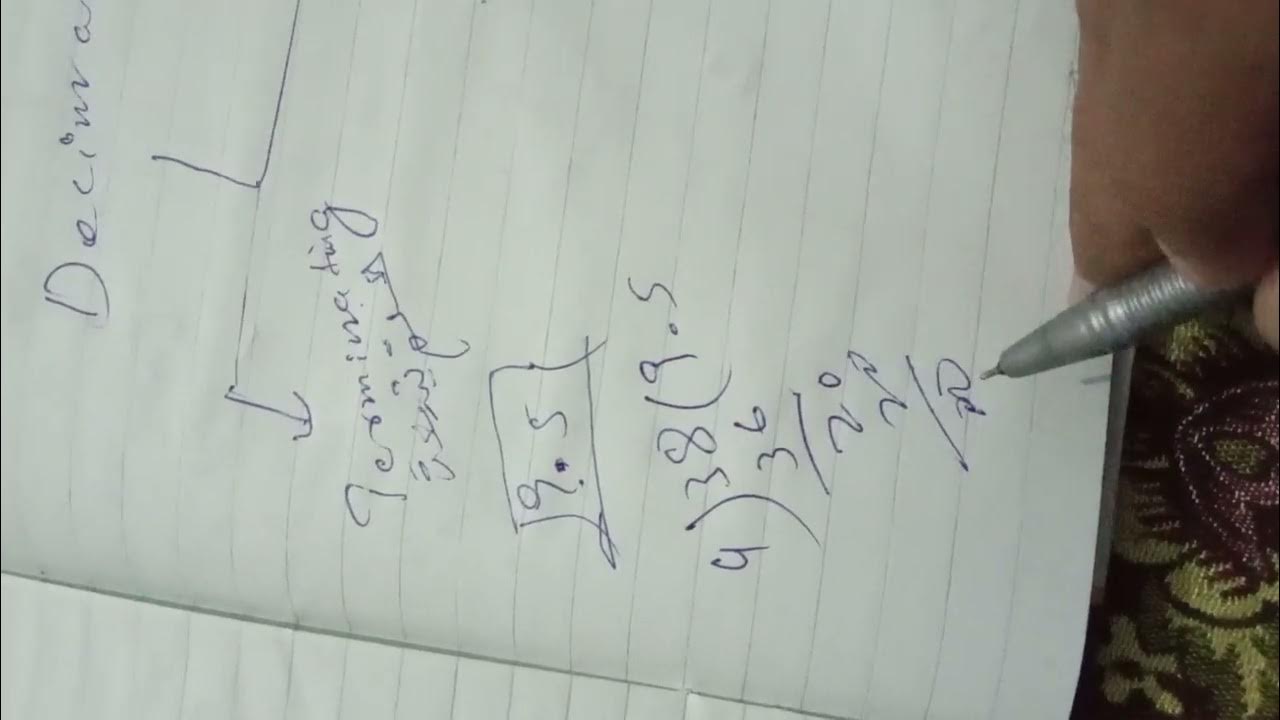 Decima
Terminating
9.5
4)38(9.5
36
20
20